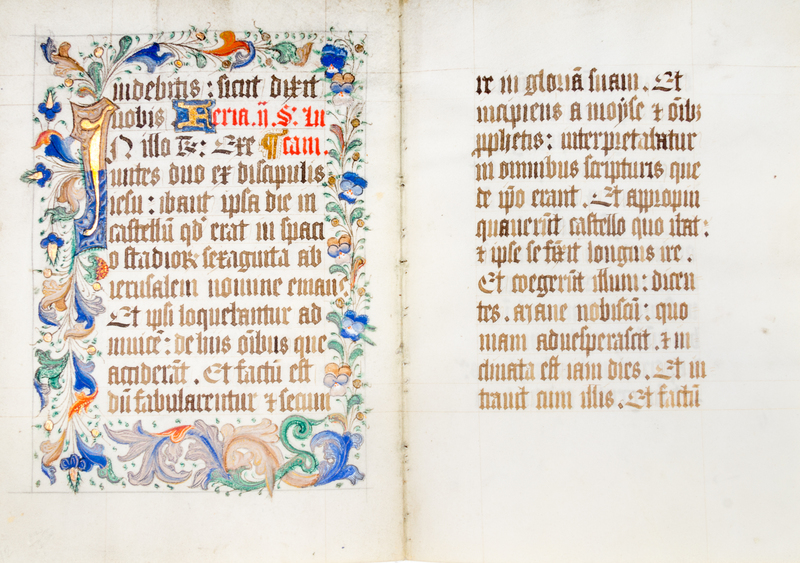 videbitis : sicut dixit
uobis Feria .ij. S: In
N illo t̄: Exe ¶ scam.
untes duo ex discipulis
iesu : ibant ipsa die in
castellū qd̄ erat in spaci
o stadioꝝ sexaginta ab
ierusalem nomine emaus.
Et ipsi loquebantur ad
inuicē : de hiis oībus que
acciderāt . Et factū est
dū fabularentur ⁊ secum
re in gloriā suam . Et
incipiens a moyse ⁊ oībꝫ
ꝓphetis : interpretabatur
in omnibus scripturis que
de ip̄o erant . Et appropin
quauerūt castello quo ibāt :
⁊ ipse se fīxit longius ire .
Et coegerūt illum : dicen
tes . mane nobiscū : quo
niam aduesperascit . ⁊ in
clinata est iam dies . Et in
trauit cum illis . Et factū